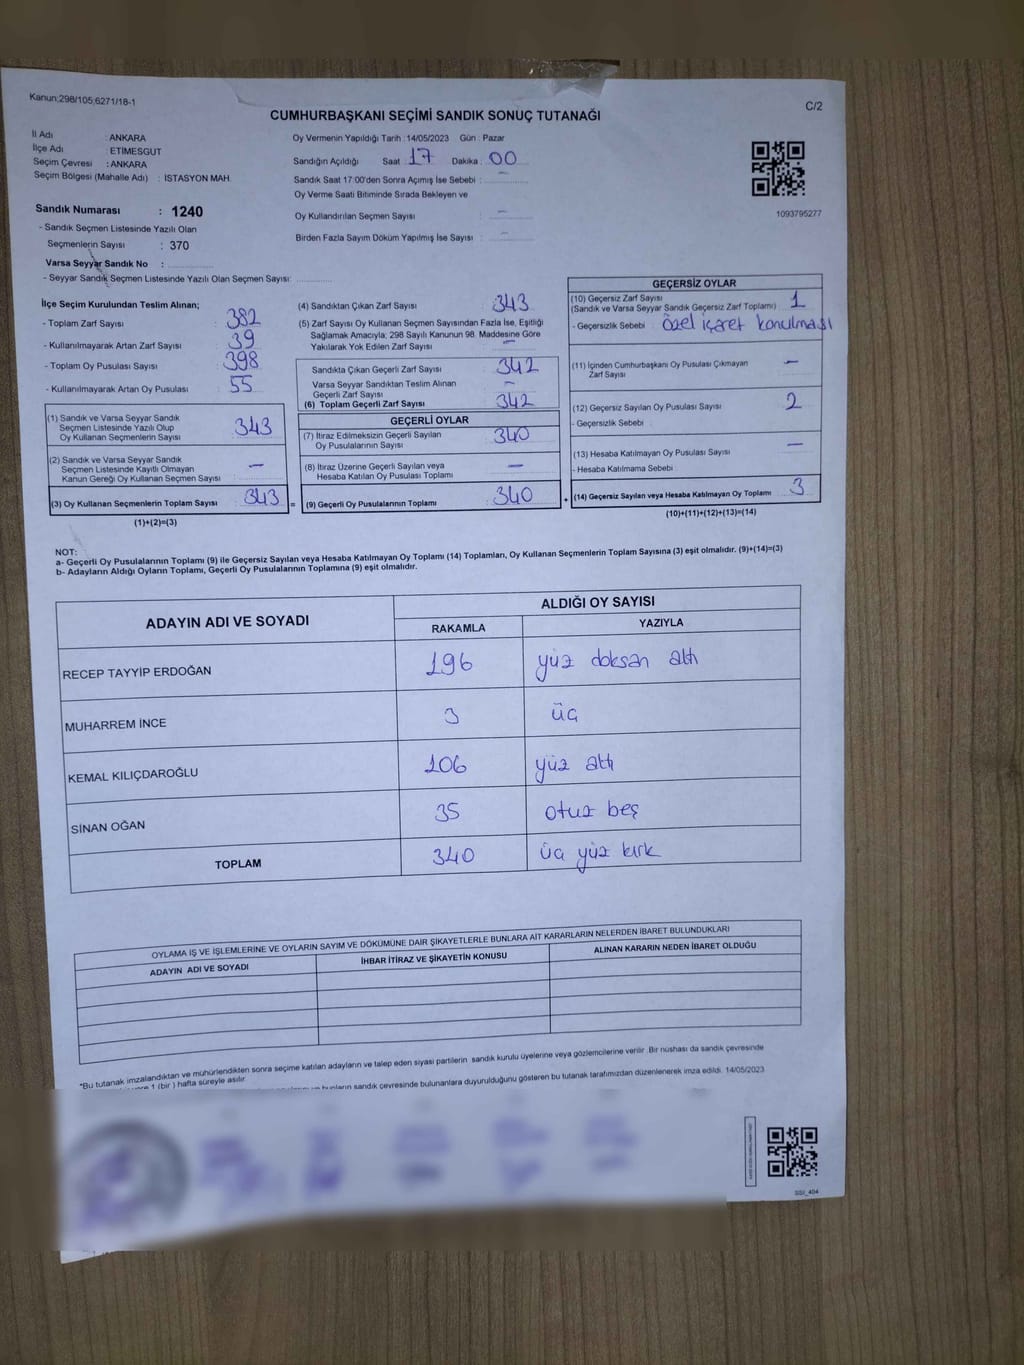 Kanun;298/105,6271/18-1
C/2
CUMHURBAŞKANI SEÇİMİ SANDIK SONUÇ TUTANAĞI
İl Adı : ANKARA
İlçe Adı : ETİMESGUT
Seçim Çevresi : ANKARA
Seçim Bölgesi (Mahalle Adı) : İSTASYON MAH.
Oy Vermenin Yapıldığı Tarih : 14/05/2023 Gün : Pazar
Sandığın Açıldığı Saat 17 Dakika : 00
Sandık Saat 17:00'den Sonra Açımış İse Sebebi : –
Oy Verme Saati Bitiminde Sırada Bekleyen ve
Oy Kullandırılan Seçmen Sayısı : –
Birden Fazla Sayım Döküm Yapılmış İse Sayısı : –
1093795277
Sandık Numarası : 1240
- Sandık Seçmen Listesinde Yazılı Olan
Seçmenlerin Sayısı : 370
Varsa Seyyar Sandık No :
- Seyyar Sandık Seçmen Listesinde Yazılı Olan Seçmen Sayısı:
İlçe Seçim Kurulundan Teslim Alınan;
- Toplam Zarf Sayısı : 382
- Kullanılmayarak Artan Zarf Sayısı : 39
- Toplam Oy Pusulası Sayısı : 398
- Kullanılmayarak Artan Oy Pusulası : 55
(1) Sandık ve Varsa Seyyar Sandık
Seçmen Listesinde Yazılı Olup
Oy Kullanan Seçmenlerin Sayısı : 343
(2) Sandık ve Varsa Seyyar Sandık
Seçmen Listesinde Kayıtlı Olmayan
Kanun Gereği Oy Kullanan Seçmen Sayısı : –
(3) Oy Kullanan Seçmenlerin Toplam Sayısı : 343 =
(1)+(2)=(3)
(4) Sandıktan Çıkan Zarf Sayısı : 343
(5) Zarf Sayısı Oy Kullanan Seçmen Sayısından Fazla İse, Eşitliği
Sağlamak Amacıyla; 298 Sayılı Kanunun 98. Maddesine Göre
Yakılarak Yok Edilen Zarf Sayısı : –
Sandıkta Çıkan Geçerli Zarf Sayısı : 342
Varsa Seyyar Sandıktan Teslim Alınan
Geçerli Zarf Sayısı : –
(6) Toplam Geçerli Zarf Sayısı : 342
GEÇERLİ OYLAR
(7) İtiraz Edilmeksizin Geçerli Sayılan
Oy Pusulalarının Sayısı : 340
(8) İtiraz Üzerine Geçerli Sayılan veya
Hesaba Katılan Oy Pusulası Toplamı : –
(9) Geçerli Oy Pusulalarının Toplamı : 340 +
GEÇERSİZ OYLAR
(10) Geçersiz Zarf Sayısı
(Sandık ve Varsa Seyyar Sandık Geçersiz Zarf Toplamı) : 1
- Geçersizlik Sebebi : özel işaret konulması
(11) İçinden Cumhurbaşkanı Oy Pusulası Çıkmayan
Zarf Sayısı : –
(12) Geçersiz Sayılan Oy Pusulası Sayısı : 2
- Geçersizlik Sebebi :
(13) Hesaba Katılmayan Oy Pusulası Sayısı : –
- Hesaba Katılmama Sebebi :
(14) Geçersiz Sayılan veya Hesaba Katılmayan Oy Toplamı : 3
(10)+(11)+(12)+(13)=(14)
NOT:
a- Geçerli Oy Pusulalarının Toplamı (9) ile Geçersiz Sayılan veya Hesaba Katılmayan Oy Toplamı (14) Toplamları, Oy Kullanan Seçmenlerin Toplam Sayısına (3) eşit olmalıdır. (9)+(14)=(3)
b- Adayların Aldığı Oyların Toplamı, Geçerli Oy Pusulalarının Toplamına (9) eşit olmalıdır.
ADAYIN ADI VE SOYADI
ALDIĞI OY SAYISI
RAKAMLA YAZIYLA
RECEP TAYYİP ERDOĞAN 196 yüz doksan altı
MUHARREM İNCE 3 üç
KEMAL KILIÇDAROĞLU 106 yüz altı
SİNAN OĞAN 35 otuz beş
TOPLAM 340 üç yüz kırk
OYLAMA İŞ VE İŞLEMLERİNE VE OYLARIN SAYIM VE DÖKÜMÜNE DAİR ŞİKAYETLERLE BUNLARA AİT KARARLARIN NELERDEN İBARET BULUNDUKLARI
ADAYIN ADI VE SOYADI İHBAR İTİRAZ VE ŞİKAYETİN KONUSU ALINAN KARARIN NEDEN İBARET OLDUĞU
*Bu tutanak imzalandıktan ve mühürlendikten sonra seçime katılan adayların ve talep eden siyasi partilerin sandık kurulu üyelerine veya gözlemcilerine verilir .Bir nüshası da sandık çevresinde
1 (bir ) hafta süreyle asılır.
bunların sandık çevresinde bulunanlara duyurulduğunu gösteren bu tutanak tarafımızdan düzenlenerek imza edildi. 14/05/2023
SSI_404